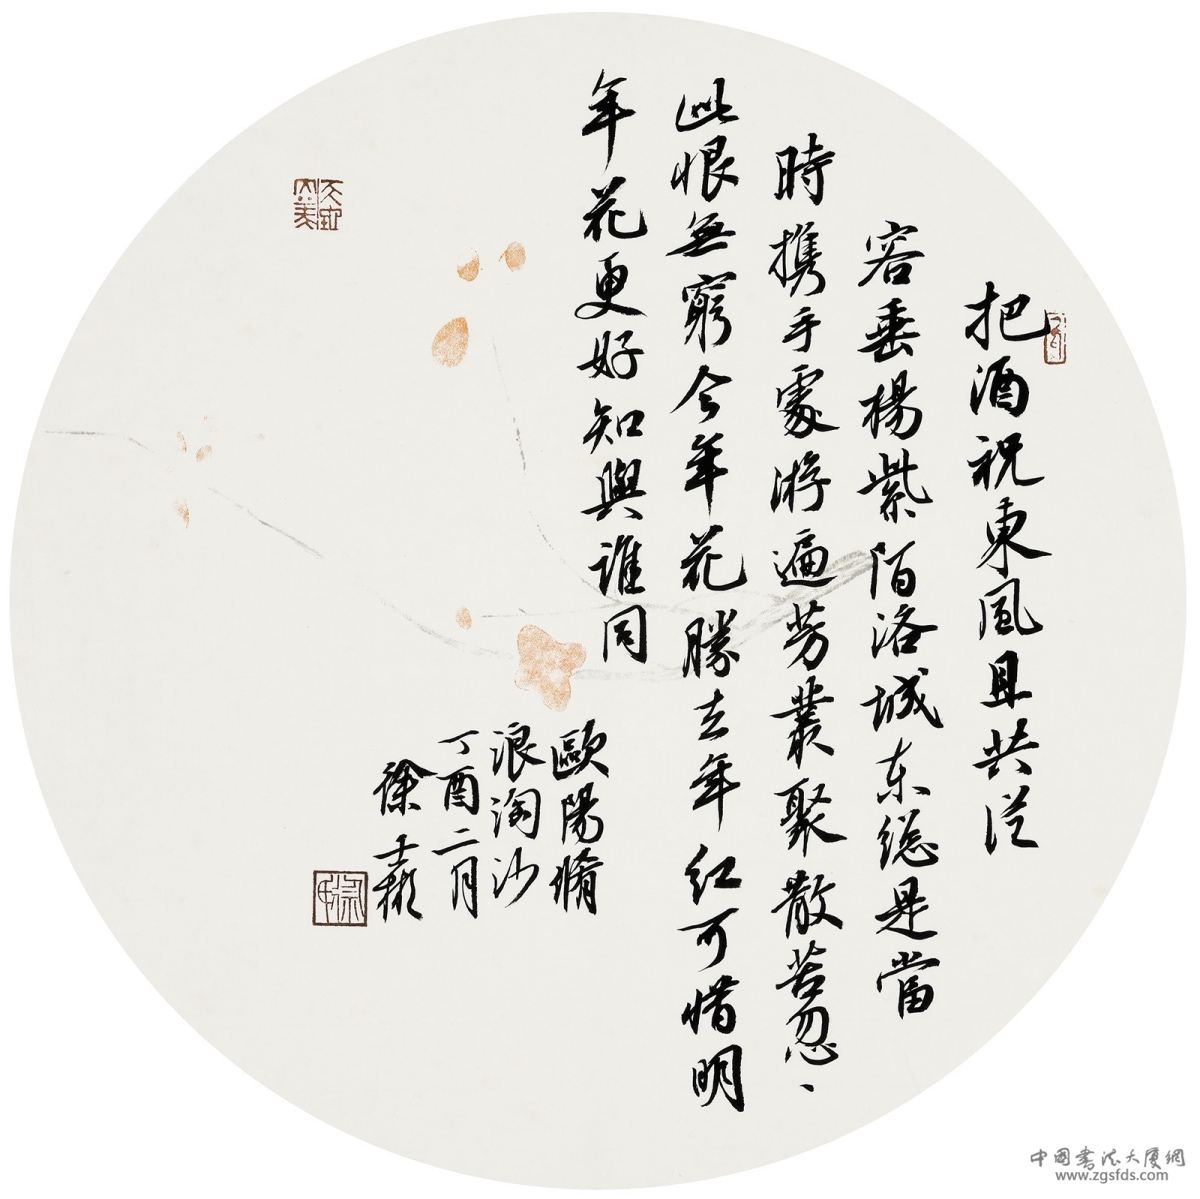 把酒祝東風且共從
容垂楊紫陌洛城东総是當
時携手處游遍芳叢聚散苦忽、、
此恨無窮今年花勝去年红可惜明
年花更好知與誰同
歐陽脩
浪淘沙
丁酉二月
徐彬
天地大美
中国書法大厦網
www.zgsfds.com